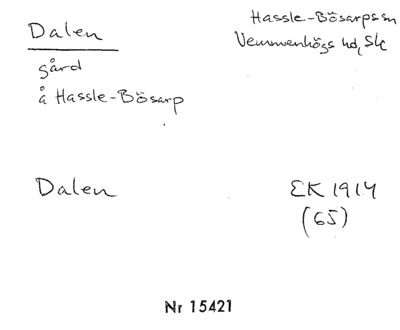 Dalen
Hassle-Bösarps sn
Vemmenhögs hd, Sk
gård
å Hassle-Bösarp
Dalen
EK 1914
(65)
Nr 15421